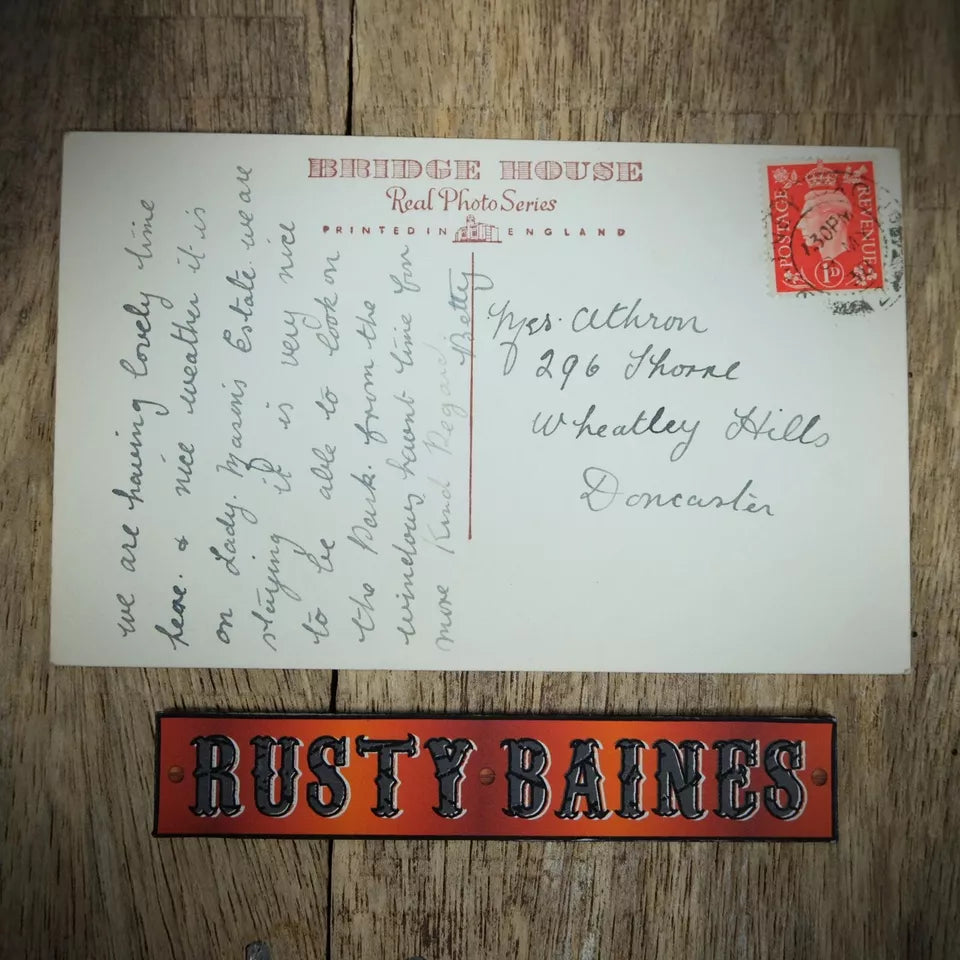 BRIDGE HOUSE
Real Photo Series
PRINTED IN ENGLAND
POSTAGE REVENUE
1D
1.30PM
we are having lovely time
here. & nice weather it is
on Lady. Mason's Estate we are
staying it is very nice
to be able to look on
the Park. from the
windows havnt time for
more Kind Regards
Betty
Mrs. Athron
296 Thorne
Wheatley Hills
Doncaster
RUSTY BAINES